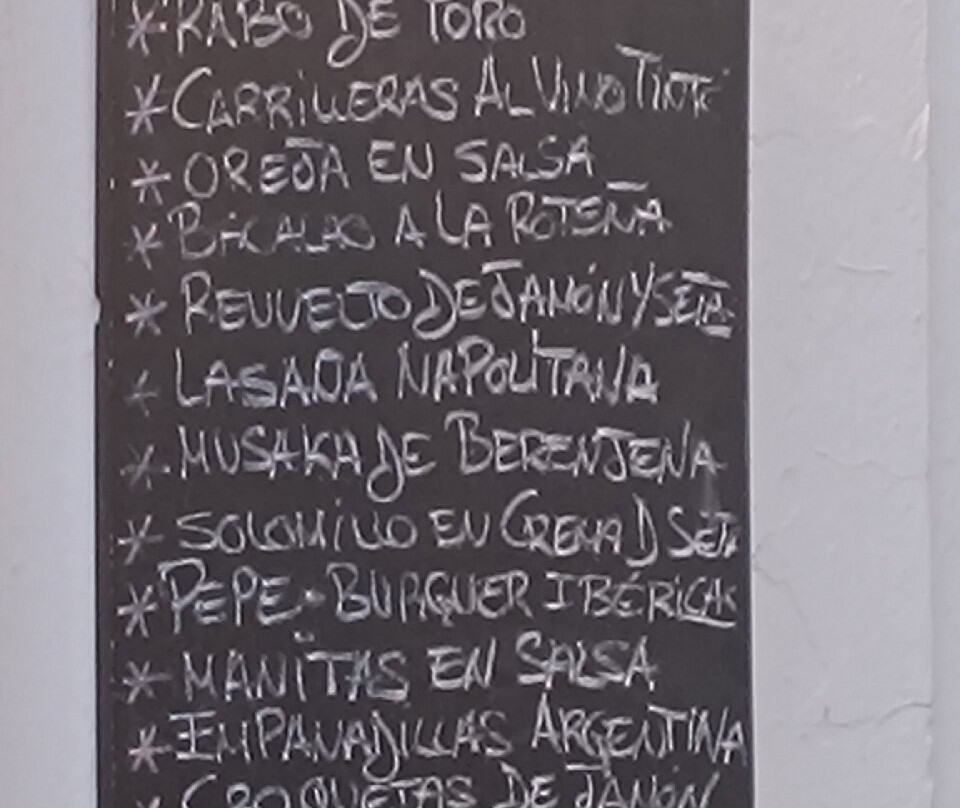 *RABO DE TORO
*CARRILLERAS AL VINO TINTO
*OREJA EN SALSA
*BACALAO A LA ROTEÑA
*REVUELTO DE JAMÓN Y SETAS
*LASAÑA NAPOLITANA
*MUSAKA DE BERENJENA
*SOLOMILLO EN CREMA D SETA
*PEPE-BURGUER IBÉRICAS
*MANITAS EN SALSA
*EMPANADILLAS ARGENTINA
*CROQUETAS DE JAMÓN